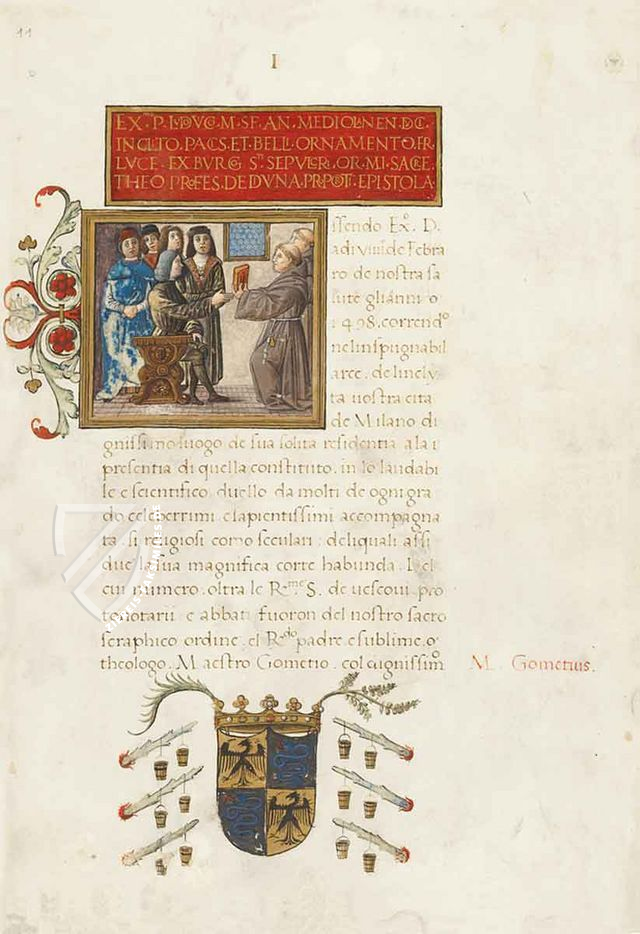 11
I
EX.P. LVDVCO. M. SF. AN. MEDIOLANEN. DC.
INCLITO. PACIS. ET. BELL. ORNAMENTO. FR.
LVCE. EX BVRG S. SEPVLCRI. OR. MI. SACRE.
THEO PROFES. DE DVNA. PROPOT. EPISTOLA
ssendo Ex. D.
a di viiii de Febra
ro de nostra sa
lute gli anni o
1498. correndo
nel inspugnabil
arce. de lincly
ta vostra cita
de Milano di
gnissimo luogo de sua solita residentia a la i
presentia di quella constituto. in lo laudabi
le e scientifico duello da molti de ogni gra
do celeberrimi e sapientissimi accompagna
ta. si religiosi como seculari: deliquali assi
due la sua magnifica corte habunda. Del
cui numero. oltra le R.me S. de uescoui pro
tonotarii e abbati fuoron del nostro sacro
seraphico ordine. el R.do padre e sublime o
theologo. Maestro Gometio. col dignissimo
M. Gometius.